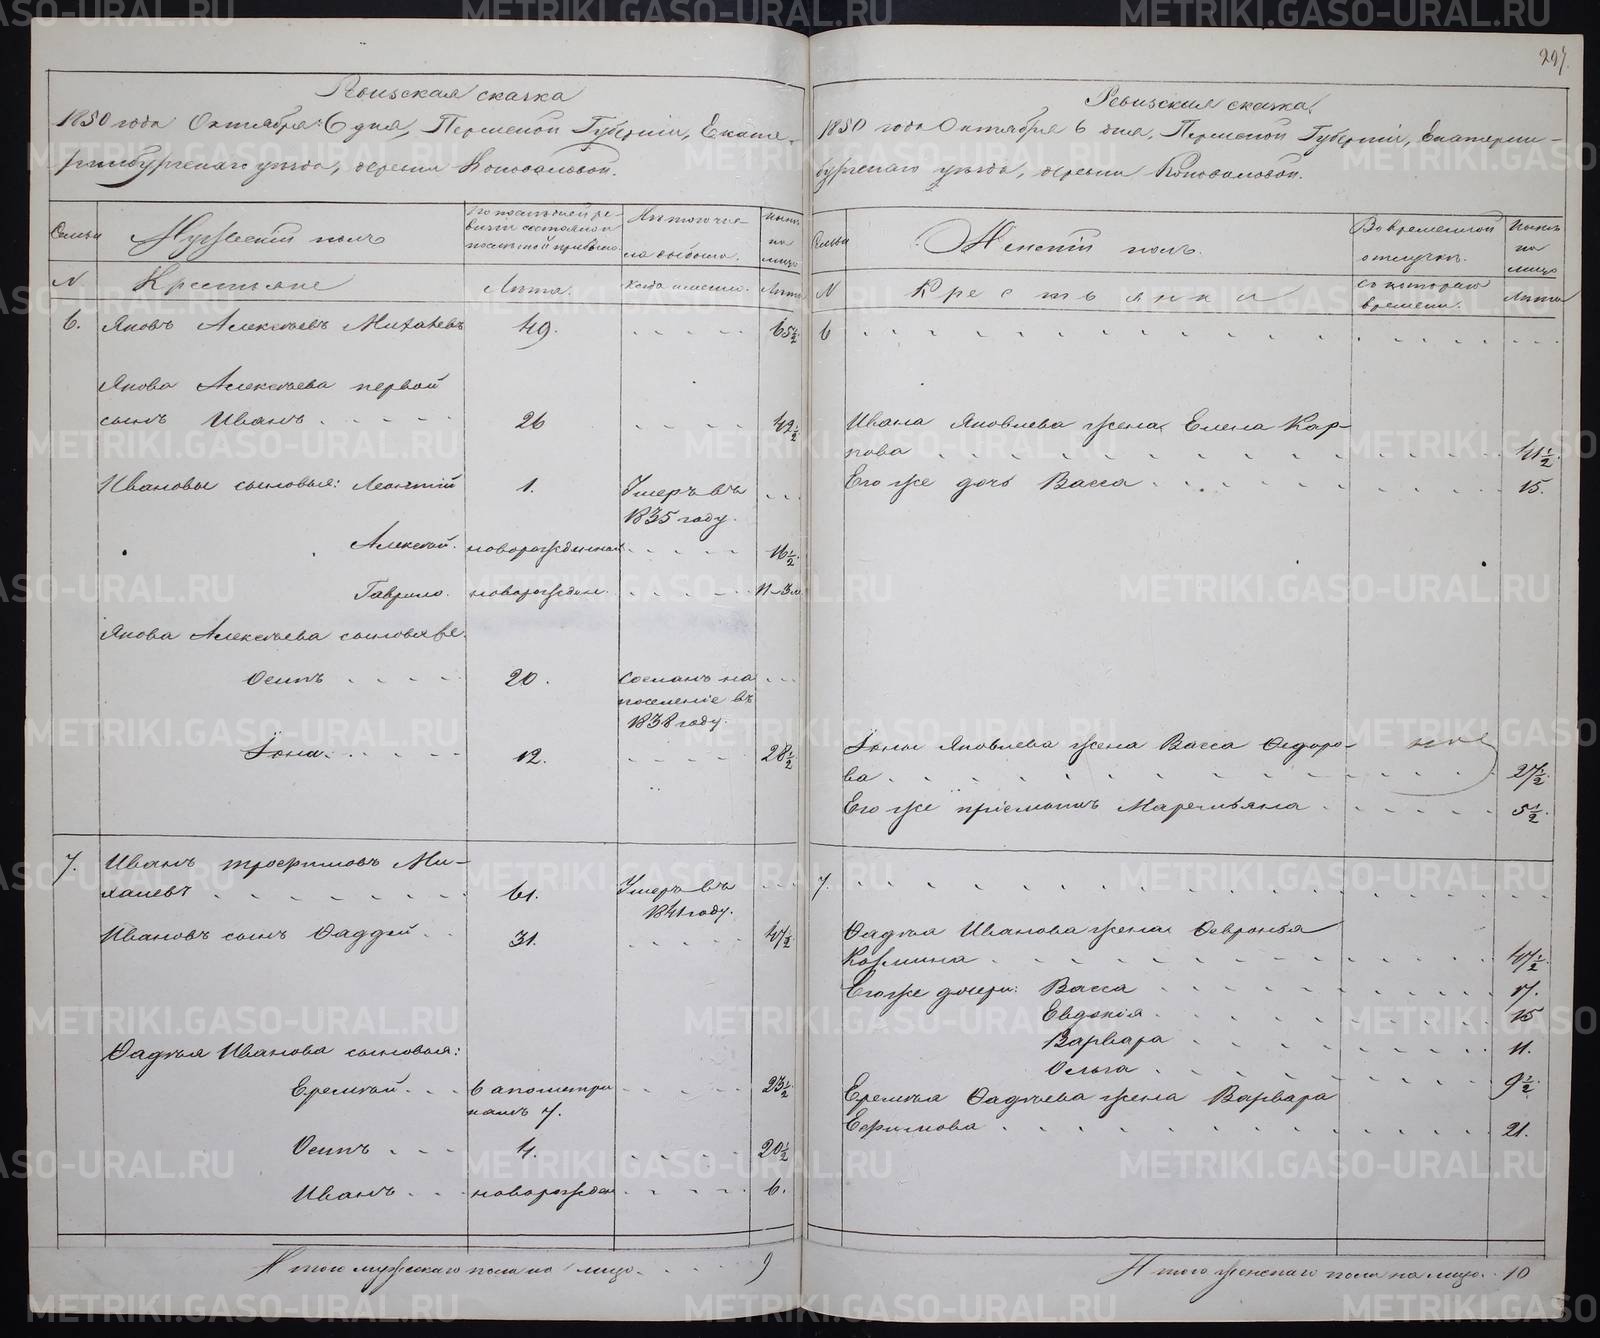 297.
Ревизская сказка
1850 года Октября 6 дня, Пермской Губерніи, Екате-
ринбургскаго уѣзда, деревни Коноваловой.
Семьи
Мужескій полъ
По послѣдней ре-
визіи состояло и
послѣ той прибыло.
Изъ того чис-
ла выбыло.
Нынѣ
на
лицо
N
Крестьяне
Лѣта.
Когда именно.
Лѣта
6. Яковъ Алексѣевъ Михалевъ 49. 65½
Якова Алексѣева первой
сынъ Иванъ 26 42½
Ивановы сыновья: Леонтій 1. Умеръ въ
1835 году.
Алексѣй. новорожденной 16½
Гаврило. новорожден. 11-3м
Якова Алексѣева сыновья 2е.
Осипъ 20. Сосланъ на
поселеніе въ
1838 году.
Іона. 12. 28½
7. Иванъ Трофимовъ Ми-
халевъ 61. Умеръ въ
1841 году.
Ивановъ сынъ Фаддей 31. 47½
Фадѣя Иванова сыновья:
Еремѣй 7. 23½
Осипъ 4. 20½
Иванъ новорожден 6.
Итого мужескаго пола на лицо. 9
Ревизская сказка
1850 года Октября 6 дня, Пермской Губерніи, Екатерин-
бургскаго уѣзда, деревни Коноваловой.
Семьи
Женскій полъ.
Во временной
отлучкѣ.
Нынѣ
на
лицо
N
Крестьянки
съ котораго
времени.
Лѣта
6
Ивана Яковлева жена Елена Кар-
пова 41½
Его же дочь Васса 15.
Іоны Яковлева жена Васса Федоро-
ва 27½
Его же пріемышъ Маремьяна 5½
7.
Фадѣя Иванова жена Февронья
Козмина 47½
Его же дочери: Васса 17.
Евдокія 15
Варвара 11.
Ольга 9½
Еремѣя Фадѣева жена Варвара
Ефимова 21.
Итого женскаго пола на лицо. 10
METRIKI.GASO-URAL.RU